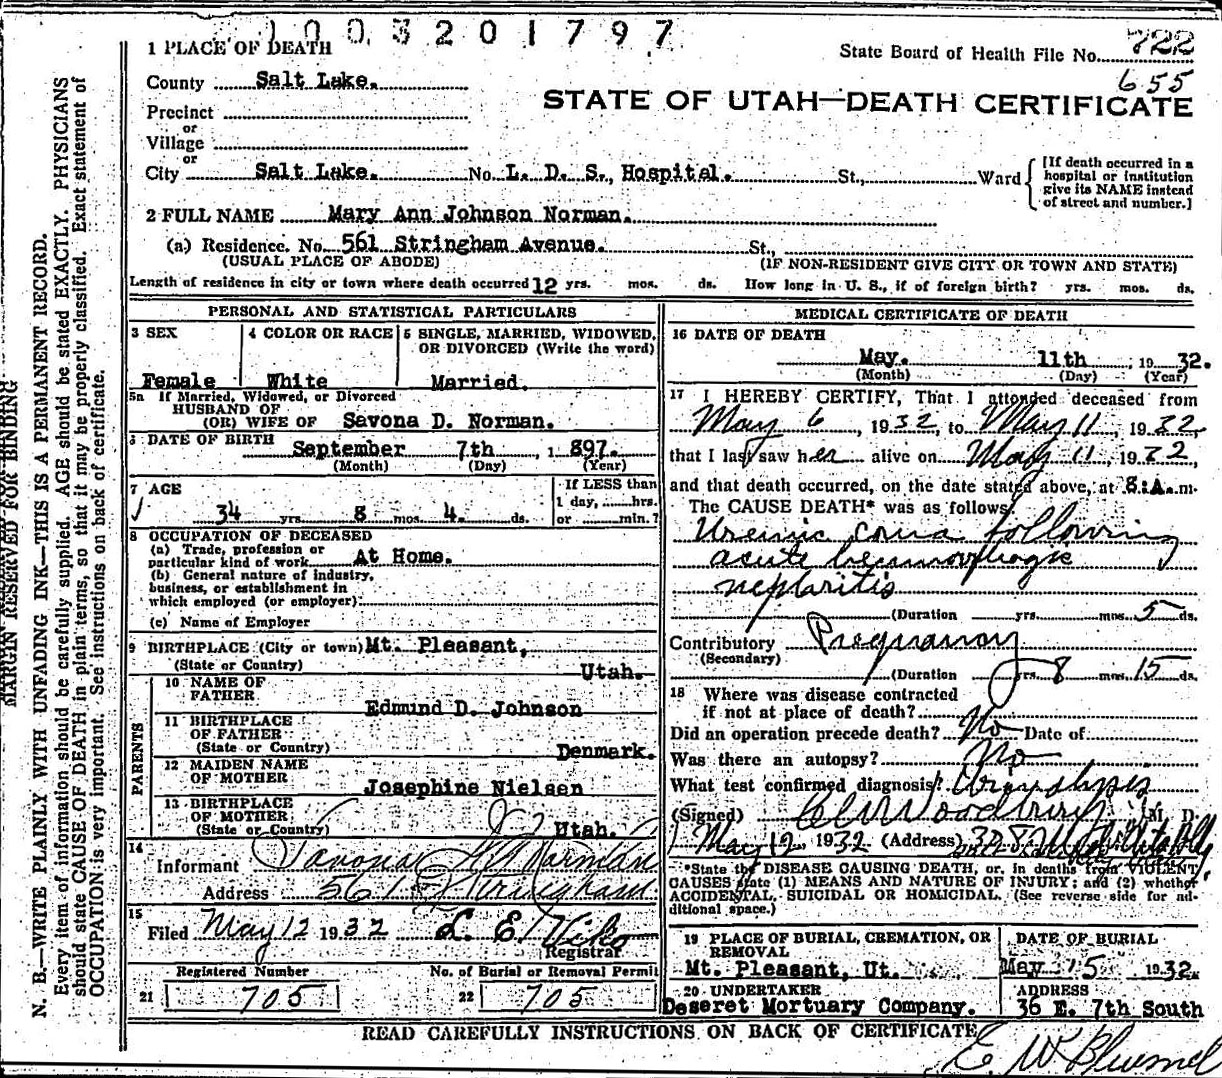 1003201797
1 PLACE OF DEATH
State Board of Health File No. 722
655
County Salt Lake.
STATE OF UTAH—DEATH CERTIFICATE
Precinct
or
Village
or
City Salt Lake. No. L. D. S., Hospital. St., Ward
[If death occurred in a hospital or institution give its NAME instead of street and number.]
2 FULL NAME Mary Ann Johnson Norman.
(a) Residence. No. 561 Stringham Avenue. St.,
(USUAL PLACE OF ABODE) (IF NON-RESIDENT GIVE CITY OR TOWN AND STATE)
Length of residence in city or town where death occurred 12 yrs. mos. ds. How long in U. S., if of foreign birth? yrs. mos. ds.
PERSONAL AND STATISTICAL PARTICULARS
3 SEX 4 COLOR OR RACE 5 SINGLE, MARRIED, WIDOWED,
OR DIVORCED (Write the word)
Female White Married.
5a If Married, Widowed, or Divorced
HUSBAND OF
(OR) WIFE OF Savona D. Norman.
6 DATE OF BIRTH
September 7th, 1897.
(Month) (Day) (Year)
7 AGE If LESS than
1 day, hrs.
34 yrs 8 mos 4. ds. or min.?
8 OCCUPATION OF DECEASED
(a) Trade, profession or
particular kind of work At Home.
(b) General nature of industry,
business, or establishment in
which employed (or employer)
(c) Name of Employer
9 BIRTHPLACE (City or town) Mt. Pleasant,
(State or Country) Utah.
PARENTS
10 NAME OF
FATHER Edmund D. Johnson
11 BIRTHPLACE
OF FATHER
(State or Country) Denmark.
12 MAIDEN NAME
OF MOTHER Josephine Nielsen
13 BIRTHPLACE
OF MOTHER
(State or Country) Utah.
14
Informant Savona Norman
Address 561 Stringham
15
Filed May 12 1932 L. E. Viko
Registrar
Registered Number No. of Burial or Removal Permit
21 705 22 705
MEDICAL CERTIFICATE OF DEATH
16 DATE OF DEATH
May. 11th, 1932.
(Month) (Day) (Year)
17 I HEREBY CERTIFY, That I attended deceased from
May 6, 1932, to May 11, 1932,
that I last saw her alive on May 11, 1932,
and that death occurred, on the date stated above, at 8:A.m.
The CAUSE DEATH* was as follows:
Uremic coma following
acute hemorrhagic
nephritis
(Duration yrs. mos. 5 ds.
Contributory Pregnancy
(Secondary)
(Duration yrs. 8 mos. 15 ds.
18 Where was disease contracted
if not at place of death?
Did an operation precede death? No Date of
Was there an autopsy? No
What test confirmed diagnosis? Urinalysis
(Signed) Woodbury M. D.
May 12, 1932 (Address)
*State the DISEASE CAUSING DEATH, or, in deaths from VIOLENT
CAUSES state (1) MEANS AND NATURE OF INJURY; and (2) whether
ACCIDENTAL, SUICIDAL OR HOMICIDAL. (See reverse side for ad-
ditional space.)
19 PLACE OF BURIAL, CREMATION, OR DATE OF BURIAL
REMOVAL
Mt. Pleasant, Ut. May 15 1932
20 UNDERTAKER ADDRESS
Deseret Mortuary Company. 36 E. 7th South
READ CAREFULLY INSTRUCTIONS ON BACK OF CERTIFICATE
E. W.
MARGIN RESERVED FOR BINDING
N. B.—WRITE PLAINLY WITH UNFADING INK—THIS IS A PERMANENT RECORD.
Every item of information should be carefully supplied. AGE should be stated EXACTLY. PHYSICIANS
should state CAUSE OF DEATH in plain terms, so that it may be properly classified. Exact statement of
OCCUPATION is very important. See instructions on back of certificate.